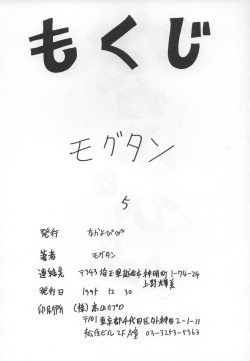 もくじ
モグタン
5
発行 なかよひ
著者 モグタン
連絡先 〒343 埼玉県越谷市神明町1-74-24
上野輝美
発行日 1995 12 30
印刷所 (株)高山カプロ
〒101 東京都千代田区外神田2-1-11
松住ビル2F A室 03-3253-5363